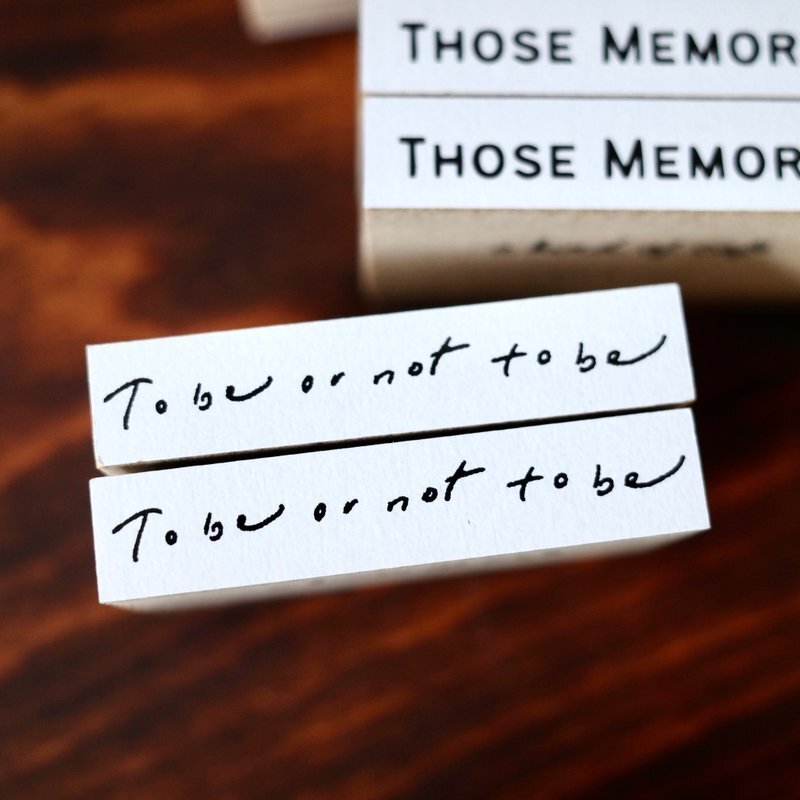 THOSE MEMOR
THOSE MEMOR
To be or not to be
To be or not to be